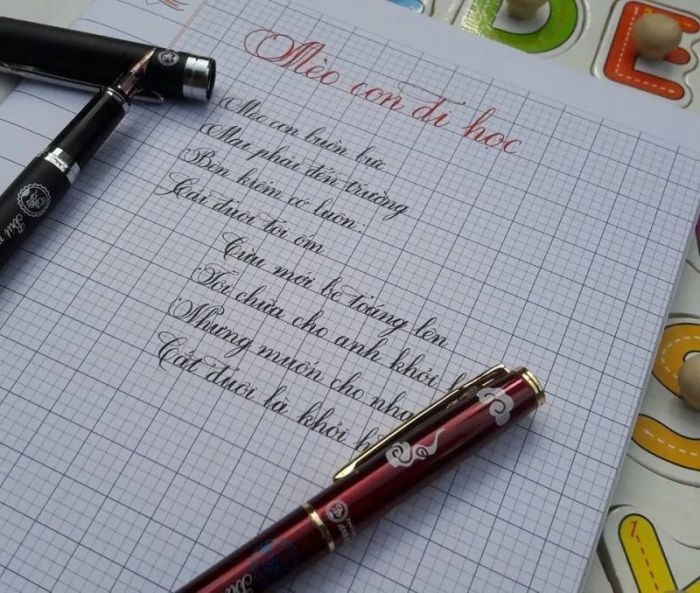 Mèo con đi học
Mèo con buồn bực
Mai phải đến trường
Bèn kiếm cớ luôn:
Cái đuôi tôi ốm
Cừu mới be toáng lên
Tôi chữa cho anh khỏi
Nhưng muốn cho
Cắt đuôi là khỏi
Bút
Bút